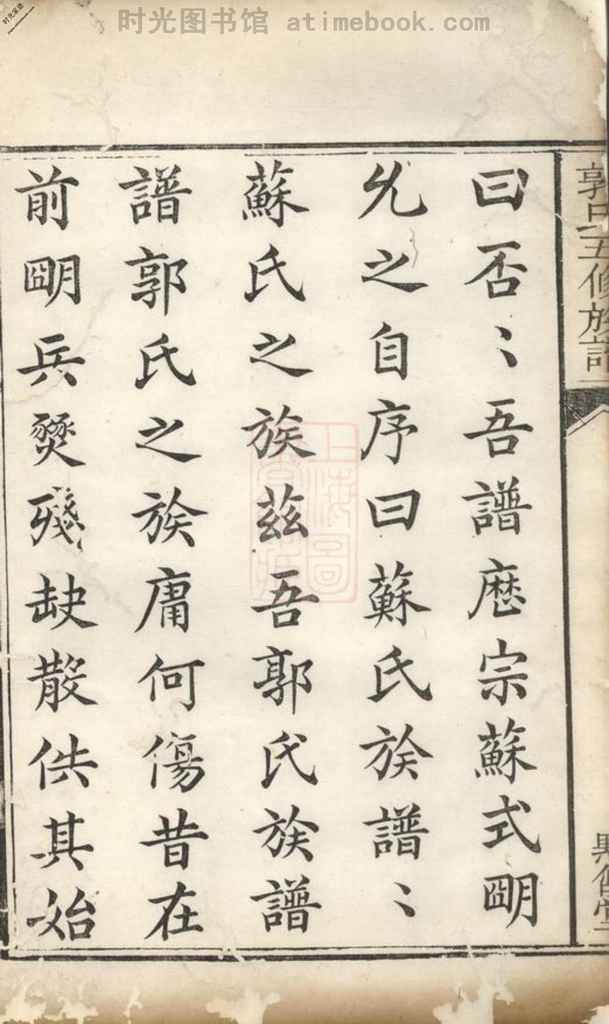 时光图书馆 atimebook.com
郭氏五修族譜
曰否〻吾譜厯宗蘇式朙
允之自序曰蘇氏族譜〻
蘇氏之族茲吾郭氏族譜
譜郭氏之族庸何傷昔在
前朙兵燹殘缺散佚其始